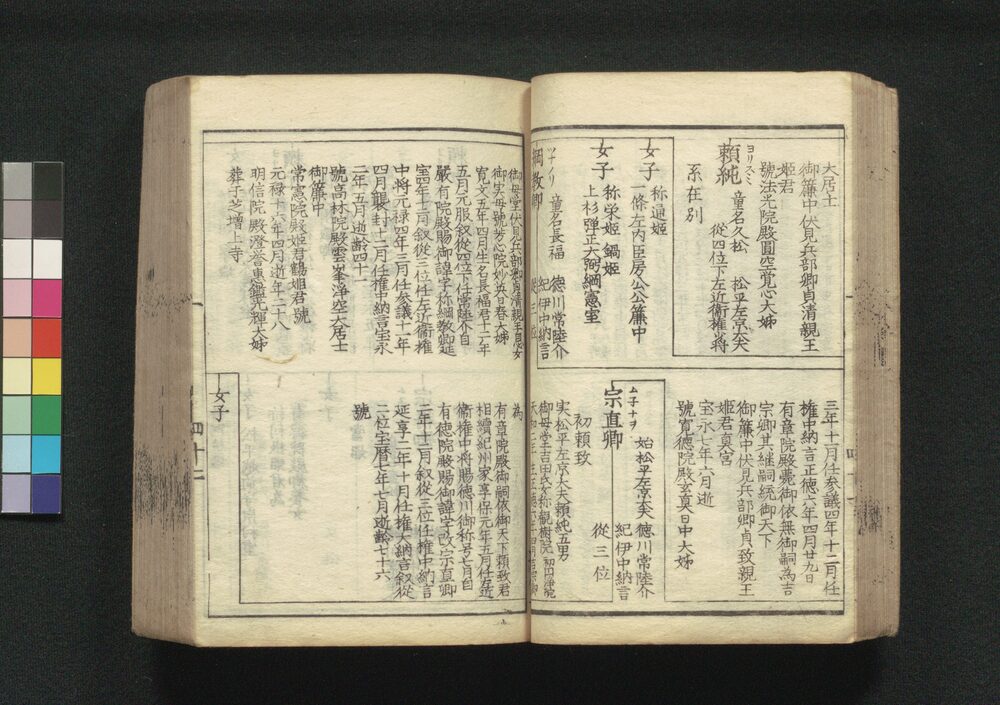 大居士
御簾中伏見兵部卿貞清親王
姫君
號法光院殿圓空寛心大姉
ヨリスミ
頼純
童名久松 松平左京大夫
從四位下左近衛權少将
系在別
女子
称通姫
一條左内臣房公簾中
女子
称栄姫 鍋姫
上杉弾正大弼綱憲室
ツナノリ
綱教卿
童名長福
徳川常陸介
紀伊中納言
從三位
三年十一月任参議四年十二月任
権中納言正徳六年四月廿九日
有章院殿薨御依無御嗣為吉
宗卿其継嗣統御天下
御簾中伏見兵部卿貞致親王
姫君真宮
宝永七年六月逝
號寛徳院殿玄真日中大姉
ムネナヲ
宗直卿
始松平左京大夫
徳川常陸介
紀伊中納言
從三位
初頼致
実松平左京大夫頼純五男
御母堂伏見兵部卿貞清親王息女
御実母號
院妙英日春大姉
寛文五年四月生名長福君十二年
五月元服叙從四位下任常陸介自
嚴有院殿賜御諱字称綱教卿延
宝四年十二月叙從三位任左近衛権
中将元禄四年三月任参議十一年
四月襲封十二月任権中納言宝永
二年五月逝齢四十一
號高林院殿雲峯浄空大居士
御簾中
常憲院殿姫君鶴姫君號
元禄十六年四月逝年二十八
明信院殿澄誉恵鑑光輝大姉
葬于芝増上寺
為
有章院殿御嗣依御天下頼致君
相續紀州家享保元年五月任左近
衛権中将賜徳川御称号七月自
有徳院殿賜御諱字改宗直卿
二年十二月叙從三位任権中納言
延享二年十月任権大納言叙從
二位宝暦七年七月逝齢七十六
號
女子
四十二